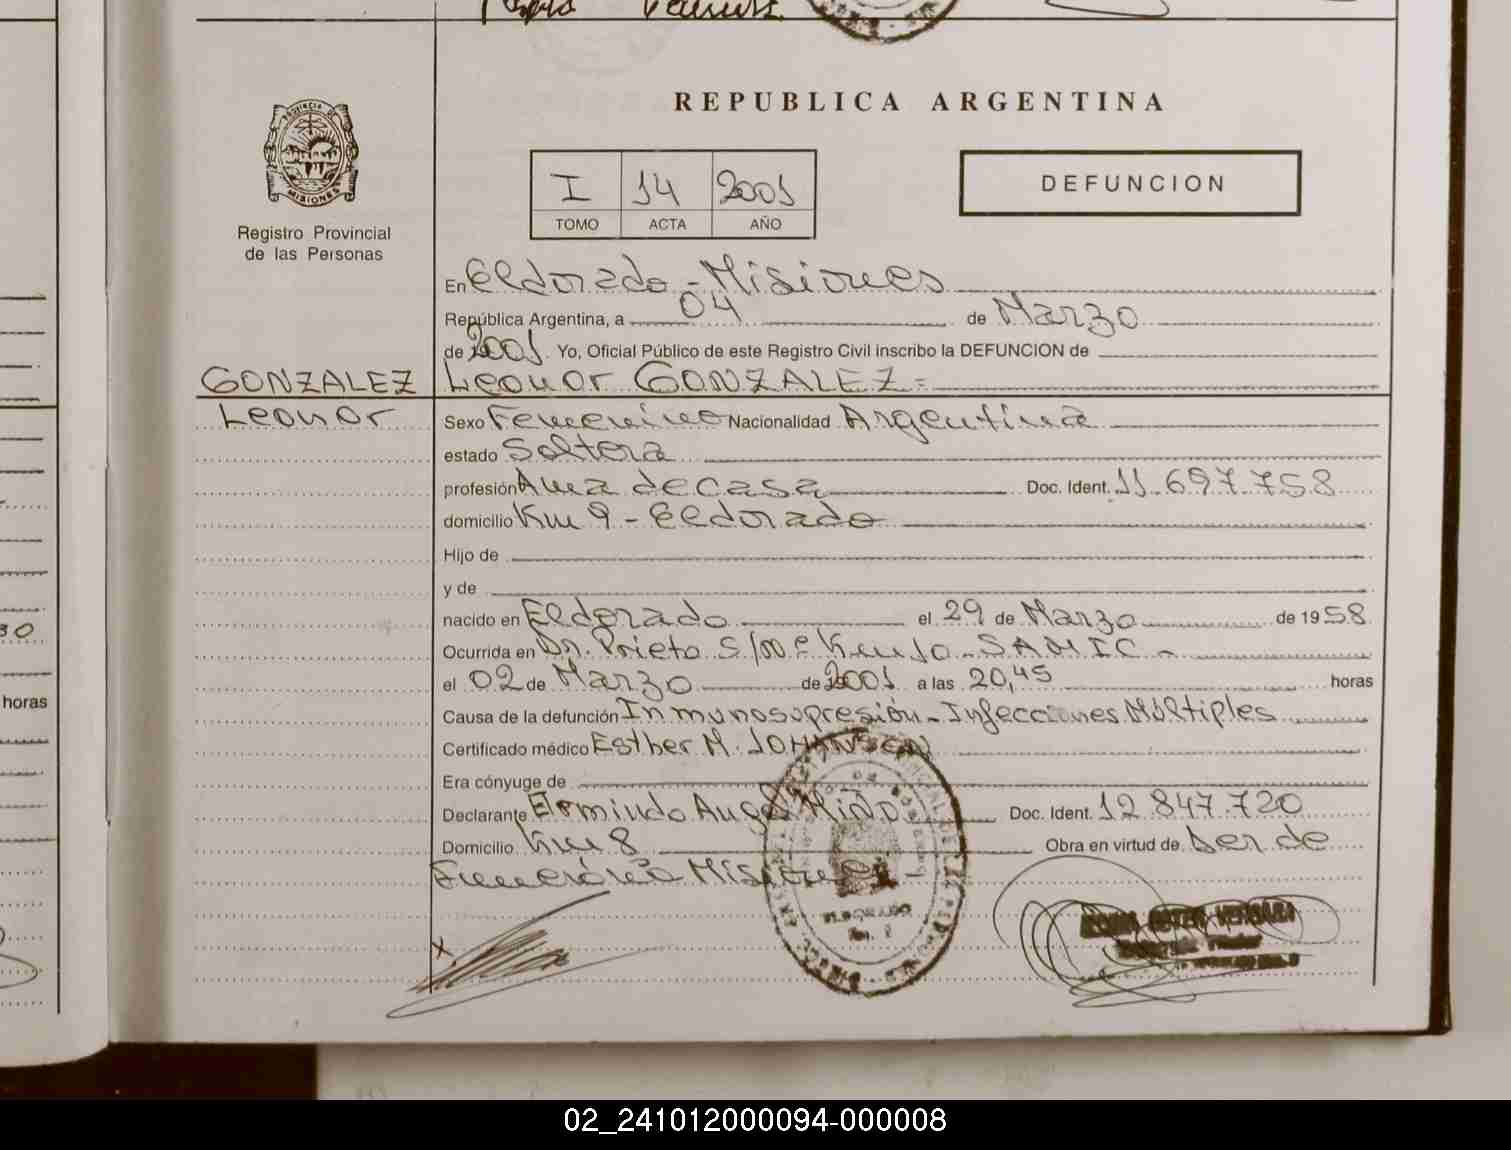 REPUBLICA ARGENTINA
PROVINCIA DE
MISIONES
Registro Provincial
de las Personas
I 14 2001
TOMO ACTA AÑO
DEFUNCION
En Eldorado - Misiones
República Argentina, a 04 de Marzo
de 2001. Yo, Oficial Público de este Registro Civil inscribo la DEFUNCION de
GONZALEZ Leonor GONZALEZ =
Leonor
Sexo Femenino Nacionalidad Argentina
estado Soltera
profesión Ama de casa Doc. Ident. 11.697.758
domicilio Km 9 - Eldorado
Hijo de
y de
nacido en Eldorado el 29 de Marzo de 1958
Ocurrida en Dr. Prieto S/Nº Km 10 - SAMIC -
el 02 de Marzo de 2001 a las 20,45 horas
Causa de la defunción Inmunosopresión - Infecciones Múltiples
Certificado médico Esther M. JOHANSEN
Era cónyuge de
Declarante Ermindo Angel Doc. Ident. 12.847.720
Domicilio Km 8 Obra en virtud de ser de
Funeraria Misiones
ELDORADO
X
30
horas
02_241012000094-000008